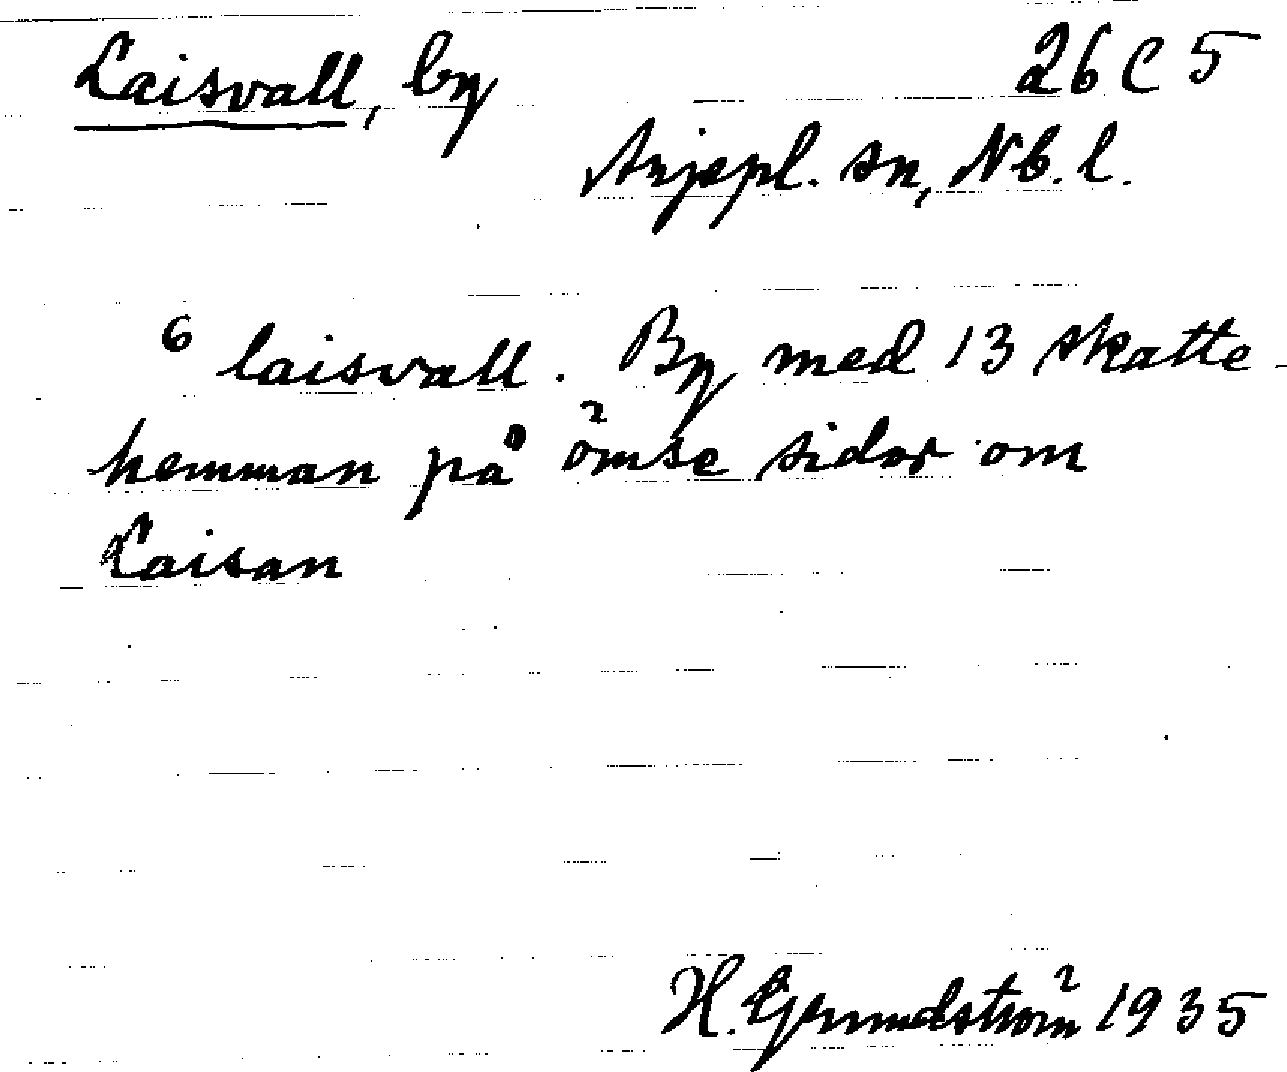 Laisvall, by 26 C 5
Arjepl. sn, Nb. l.
6 laisvall. By med 13 skatte-
hemman på ömse sidor om
Laisan
H. Grundström 1935